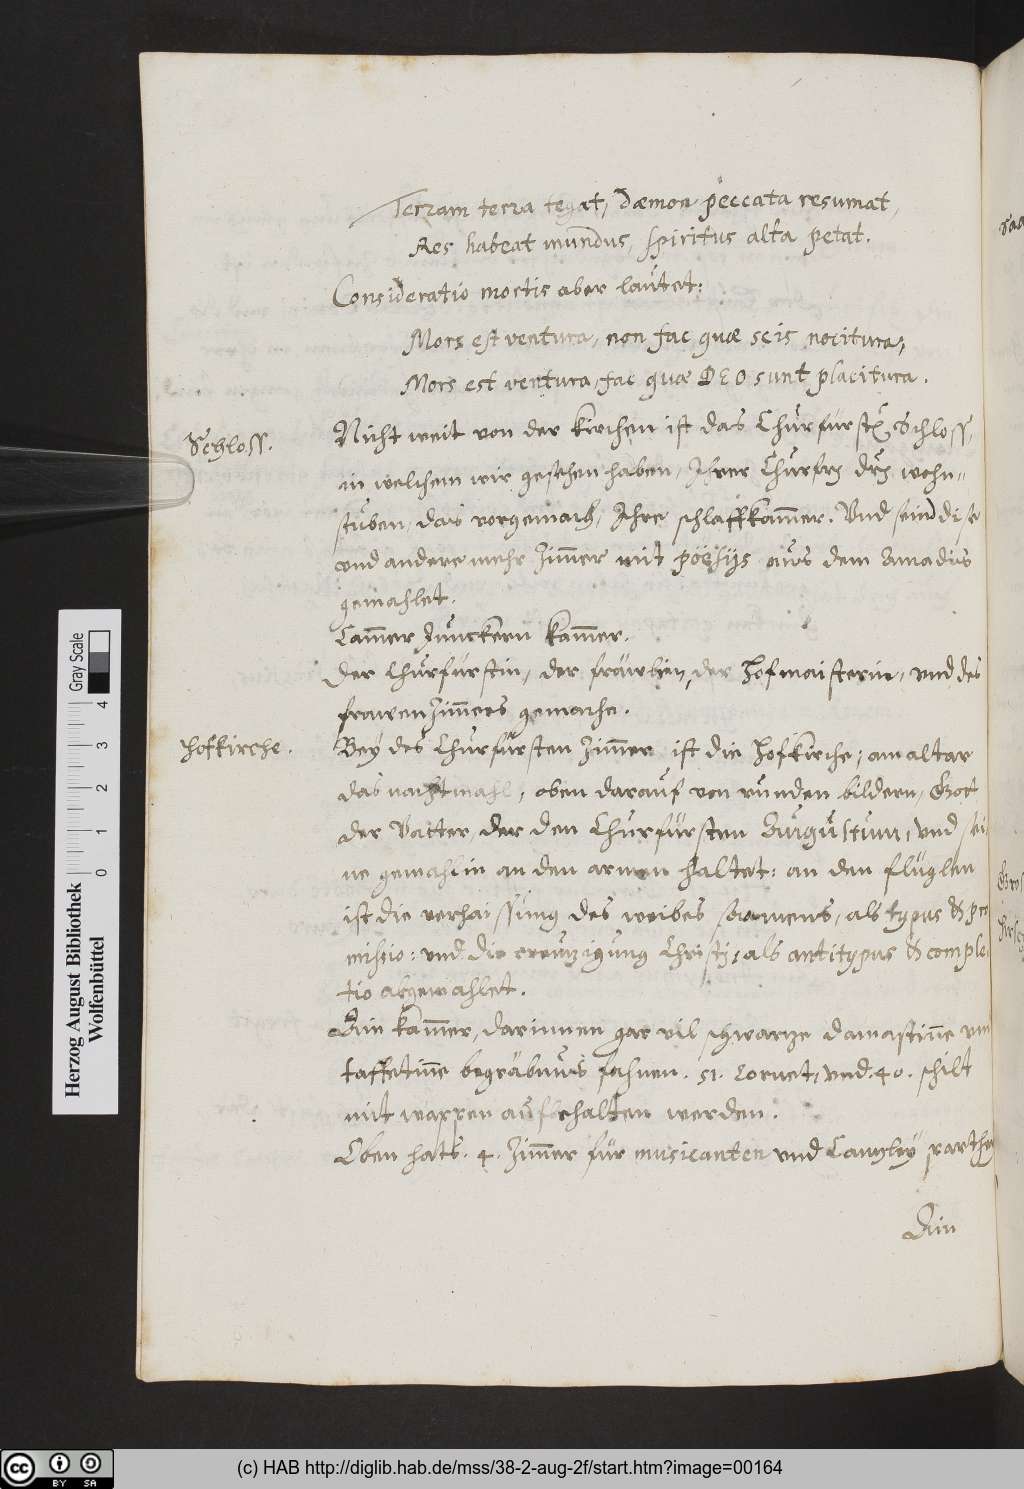 Terram terra tegat, dæmon peccata resumat,
Res habeat mundus, spiritus alta petat.
Consideratio mortis aber lautet:
Mors est ventura, non fac quæ scis nocitura,
Mors est ventura, fac quæ DEO sunt placitura.
Schloss.
Nicht weit von der kirchen ist das Churfürstl. Schloss,
in welchem wir gesehen haben, Ihrer Churfrl. drl. wohn-
stuben, das vorgemach, Ihre schlaffkam̄er. Vnd seind dise
vnd andere mehr Zim̄er mit poësijs aus dem Amadis
gemahlet.
Cam̄er Junckern kam̄er.
Der Churfürstin, der fräwlein, der Hofmaisterin, vnd des
frawenzim̄ers gemache.
Hofkirche.
Bey des Churfürsten Zim̄er ist die Hofkirche; am altar
das nachtmahl, oben darauf von runden bildern, Gott
der Vatter, der den Churfürsten Augustum, vnd sei
ne gemahlin an den armen haltet: an den flüglen
ist die verhaissung des weibes saamens, als typus & pro
missio: vnd die creutzigung Christi, als antitypus & comple
tio abgemahlet.
Ain kam̄er, darinnen gar vil schwartze damastin̄e vn
taffetin̄e begräbnus fahnen. 51. Cornet, vnd. 40. schilt
mit wappen aufbehalten werden.
Oben hats. 4. Zim̄er für musicanten vnd Cantzley parthey
Ain
Herzog August Bibliothek
Wolfenbüttel
Gray Scale
0 1 2 3 4
(c) HAB http://diglib.hab.de/mss/38-2-aug-2f/start.htm?image=00164
CC BY SA